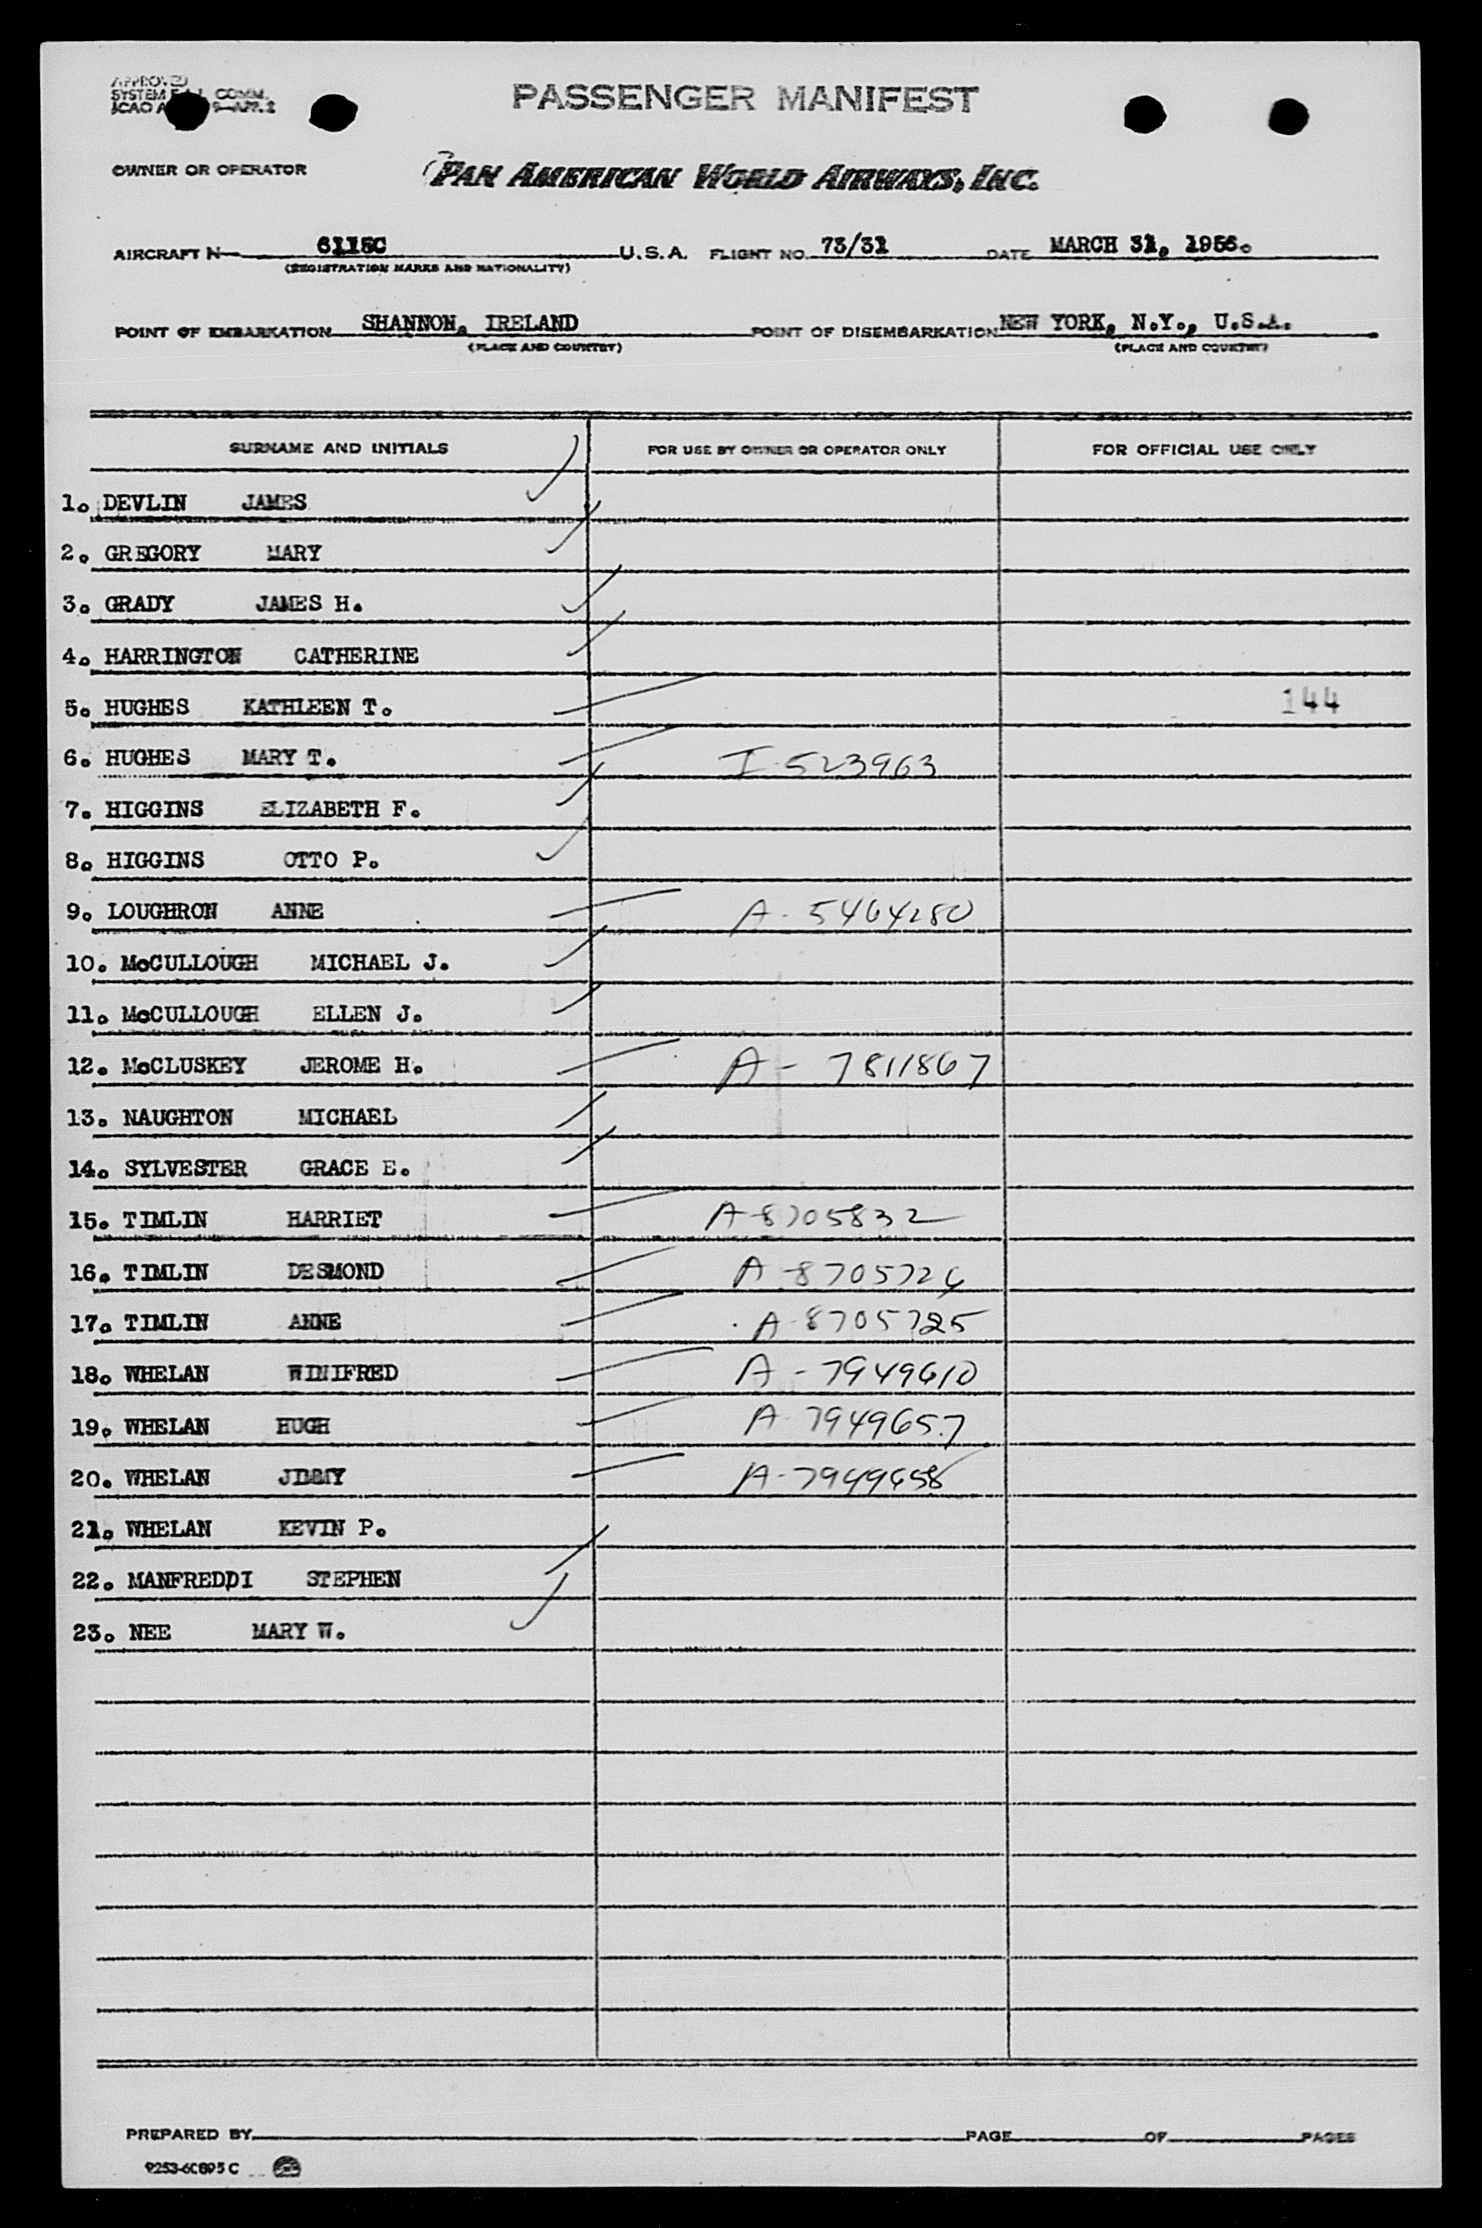 APPROVED
SYSTEM COMM.
ICAO 9-APP. 2
PASSENGER MANIFEST
OWNER OR OPERATOR PAN AMERICAN WORLD AIRWAYS, INC.
AIRCRAFT N 6115C U.S.A. FLIGHT NO. 73/31 DATE MARCH 31, 1956.
(REGISTRATION MARKS AND NATIONALITY)
POINT OF EMBARKATION SHANNON, IRELAND POINT OF DISEMBARKATION NEW YORK, N.Y., U.S.A.
(PLACE AND COUNTRY) (PLACE AND COUNTRY)
SURNAME AND INITIALS FOR USE BY OWNER OR OPERATOR ONLY FOR OFFICIAL USE ONLY
1. DEVLIN JAMES
2. GREGORY MARY
3. GRADY JAMES H.
4. HARRINGTON CATHERINE
5. HUGHES KATHLEEN T. 144
6. HUGHES MARY T. I-523963
7. HIGGINS ELIZABETH F.
8. HIGGINS OTTO P.
9. LOUGHRON ANNE A-5464280
10. McCULLOUGH MICHAEL J.
11. McCULLOUGH ELLEN J.
12. McCLUSKEY JEROME H. A-7811867
13. NAUGHTON MICHAEL
14. SYLVESTER GRACE E.
15. TIMLIN HARRIET A-8705832
16. TIMLIN DESMOND A-8705726
17. TIMLIN ANNE A-8705725
18. WHELAN WINIFRED A-7949610
19. WHELAN HUGH A-7949657
20. WHELAN JIMMY A-7949658
21. WHELAN KEVIN P.
22. MANFREDDI STEPHEN
23. NEE MARY W.
PREPARED BY PAGE OF PAGES
9253-6C895 C